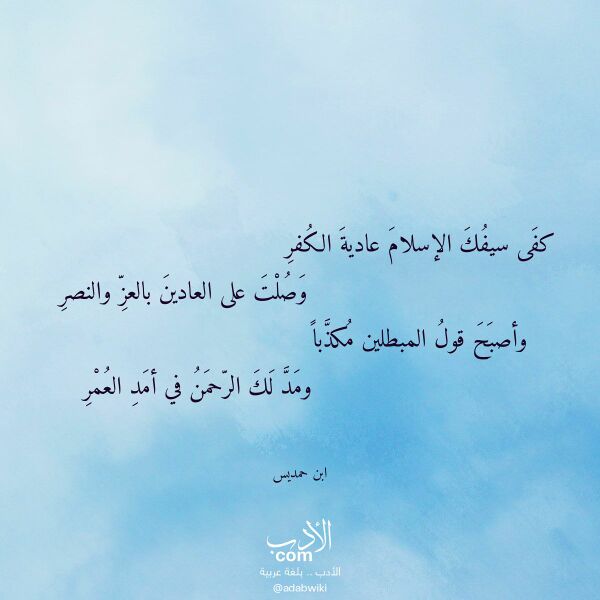 كفَى سيفُكَ الإسلامَ عاديةَ الكُفرِ
وَصُلْتَ على العادينَ بالعزِّ والنصرِ
وأصبَحَ قولُ المبطلين مُكذَّباً
ومَدَّ لَكَ الرّحمَنُ في أمَدِ العُمْرِ
ابن حمديس
الأدب
com
الأدب .. بلغة عربية
@adabwiki